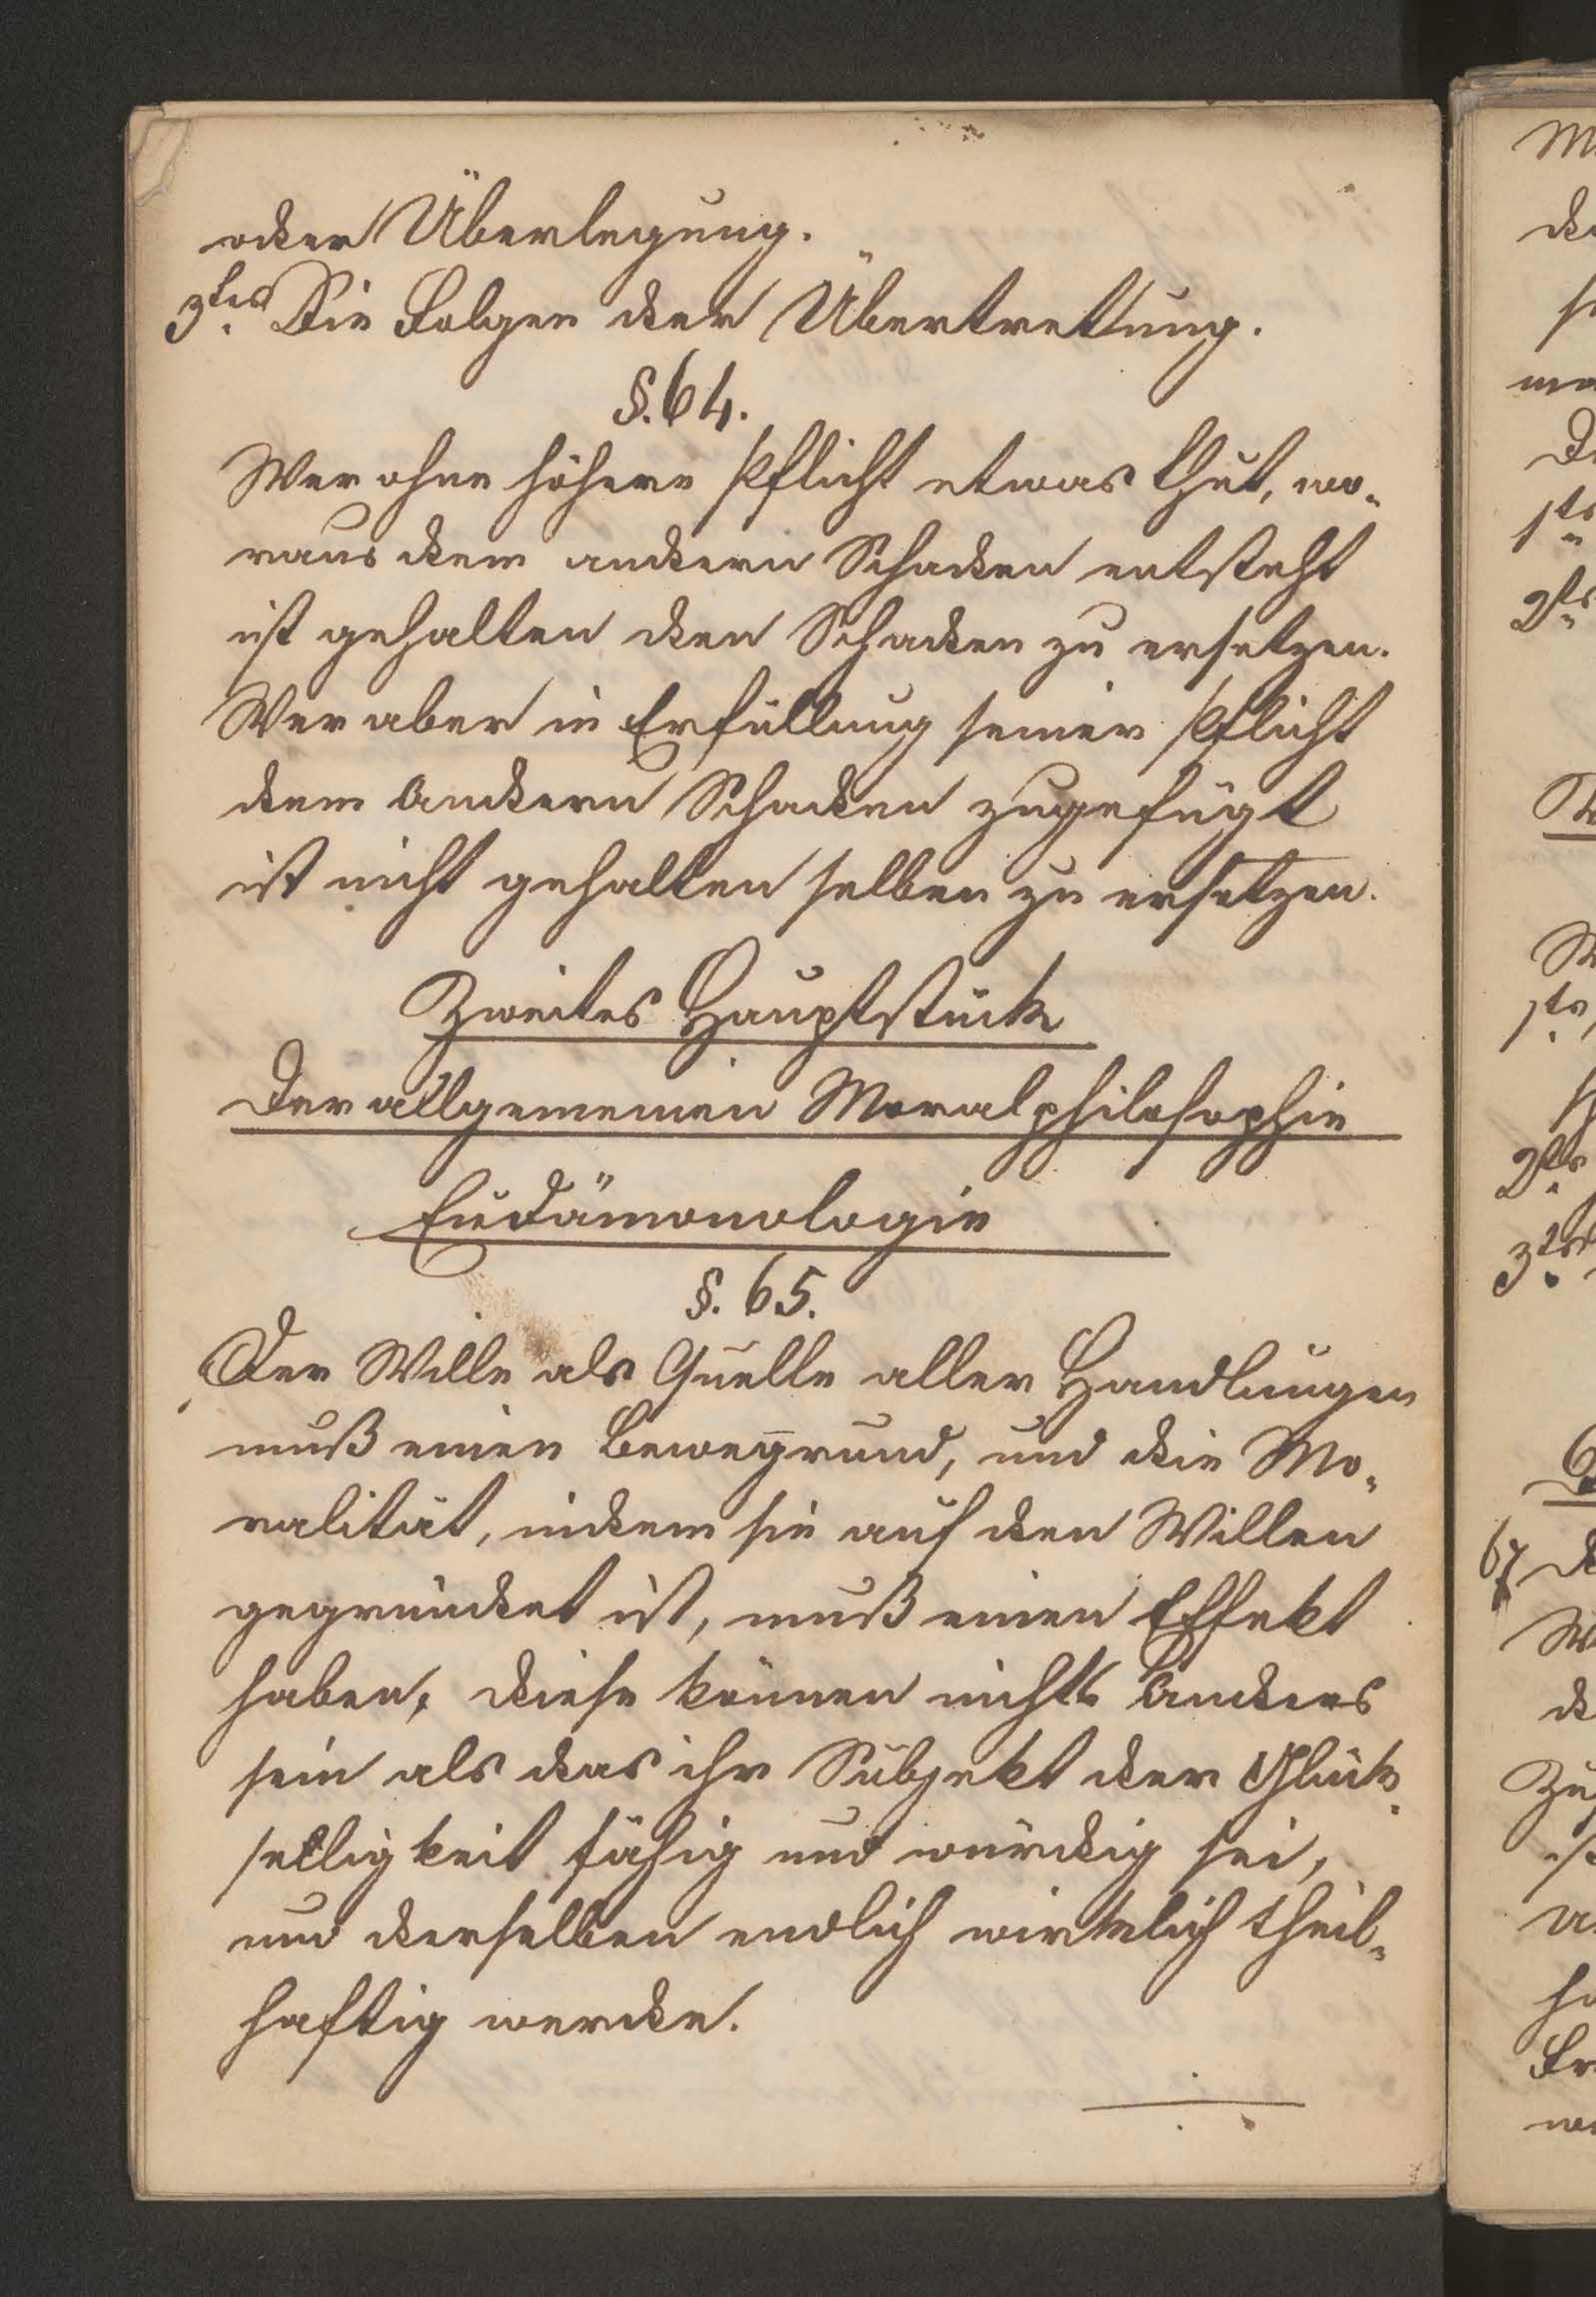 oder Überlegung.
3tes Die Folgen der Übertrettung.
§. 64.
Wer ohne höhere Pflicht etwas thut, wo-
raus dem andern Schaden entsteht
ist gehalten den Schaden zu ersetzen.
Wer aber in Erfüllung seiner Pflicht
dem Andern Schaden zugefügt
ist nicht gehalten selben zu ersetzen.
Zweites Hauptstück
Der allgemeinen Moralphilosophie
Eudämonologie
§. 65.
Der Wille als Quelle aller Handlungen
muß einen Beweggrund, und die Mo-
ralität, indem sie auf den Willen
gegründet ist, muß einen Effekt
haben, diese können nichts Anders
sein als das ihr Subjekt der Glück-
selligkeit fähig und würdig sei,
und derselben endlich wirklich theil-
haftig werde.